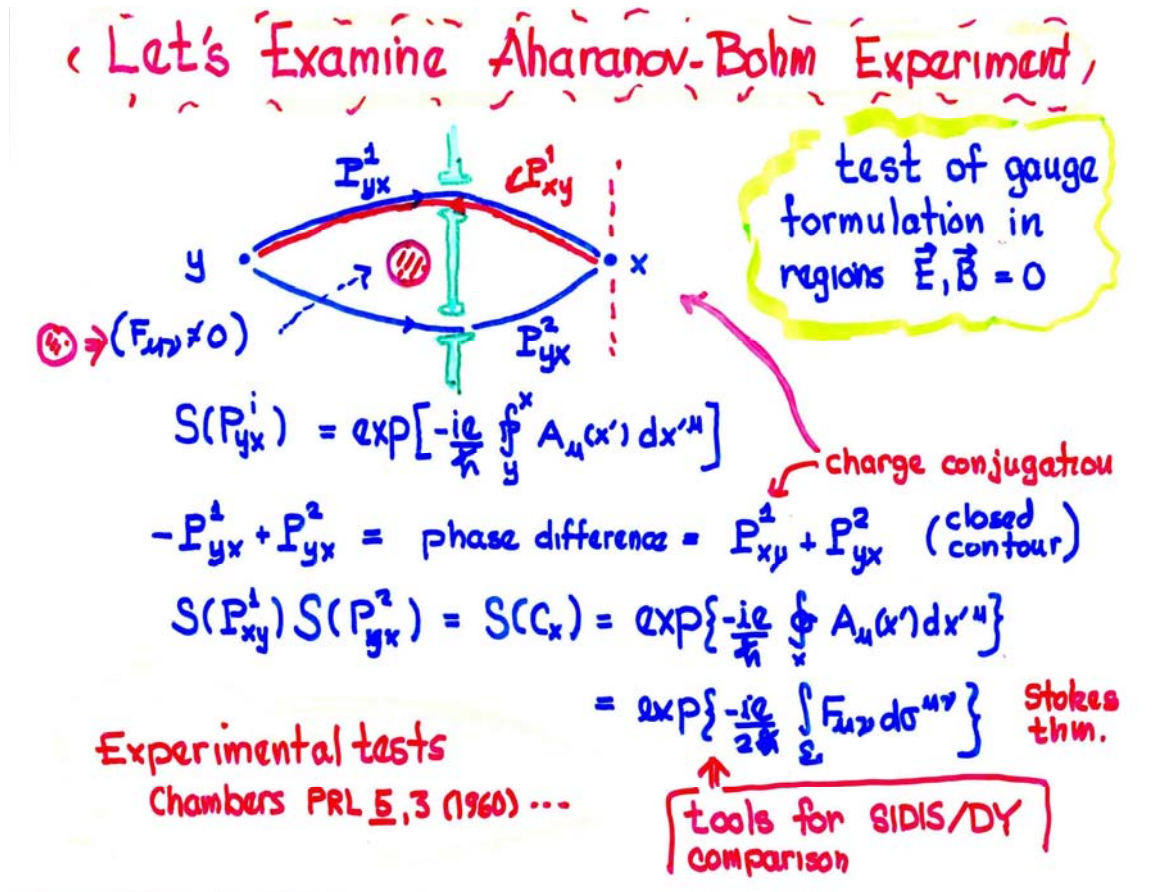 Let's Examine Aharanov-Bohm Experiment
P¹yx
P¹xy
test of gauge
formulation in
regions E⃗, B⃗ = 0
y
x
⇒ (Fμν ≠ 0)
P²yx
S(Pⁱyx) = exp[-ie/ħ ∮yˣ Aμ(x') dx'^μ]
charge conjugation
-P¹yx + P²yx = phase difference = P¹xy + P²yx (closed contour)
S(P¹xy) S(P²yx) = S(Cx) = exp{-ie/ħ ∮x Aμ(x') dx'^μ}
= exp{-ie/2ħ ∫Σ Fμν dσ^μν} Stokes thm.
Experimental tests
Chambers PRL 5, 3 (1960) ...
tools for SIDIS/DY
comparison